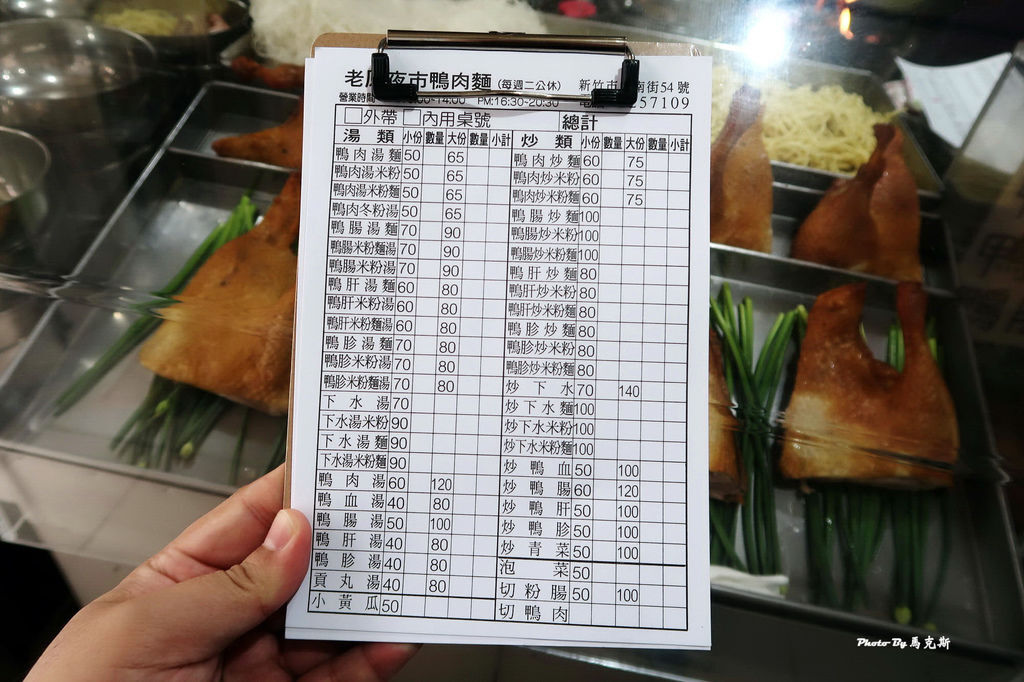 老 夜市鴨肉麵 (每週二公休) 新竹市 南街54號
營業時間 00~14:00 PM:16:30-20:30 57109
□外帶 □內用桌號 總計
湯類 小份 數量 大份 數量 小計 炒類 小份 數量 大份 數量 小計
鴨肉湯麵 50 65 鴨肉炒麵 60 75
鴨肉湯米粉 50 65 鴨肉炒米粉 60 75
鴨肉湯米粉麵 50 65 鴨肉炒米粉麵 60 75
鴨肉冬粉湯 50 65 鴨腸炒麵 100
鴨腸湯麵 70 90 鴨腸炒米粉 100
鴨腸米粉麵湯 70 90 鴨腸炒米粉麵 100
鴨腸米粉湯 70 90 鴨肝炒麵 80
鴨肝湯麵 60 80 鴨肝炒米粉 80
鴨肝米粉湯 60 80 鴨肝炒米粉麵 80
鴨肝米粉麵湯 60 80 鴨胗炒麵 80
鴨胗湯麵 70 80 鴨胗炒米粉 80
鴨胗米粉湯 70 80 鴨胗炒米粉麵 80
鴨胗米粉麵湯 70 80 炒下水 70 140
下水湯 70 炒下水麵 100
下水湯米粉 90 炒下水米粉 100
下水湯麵 90 炒下水米粉麵 100
下水湯米粉麵 90 炒鴨血 50 100
鴨肉湯 60 120 炒鴨腸 60 120
鴨血湯 40 80 炒鴨肝 50 100
鴨腸湯 50 100 炒鴨胗 50 100
鴨肝湯 40 80 炒青菜 50 100
鴨胗湯 40 80 泡菜 50
貢丸湯 40 80 切粉腸 50 100
小黃瓜 50 切鴨肉
Photo By 馬克斯